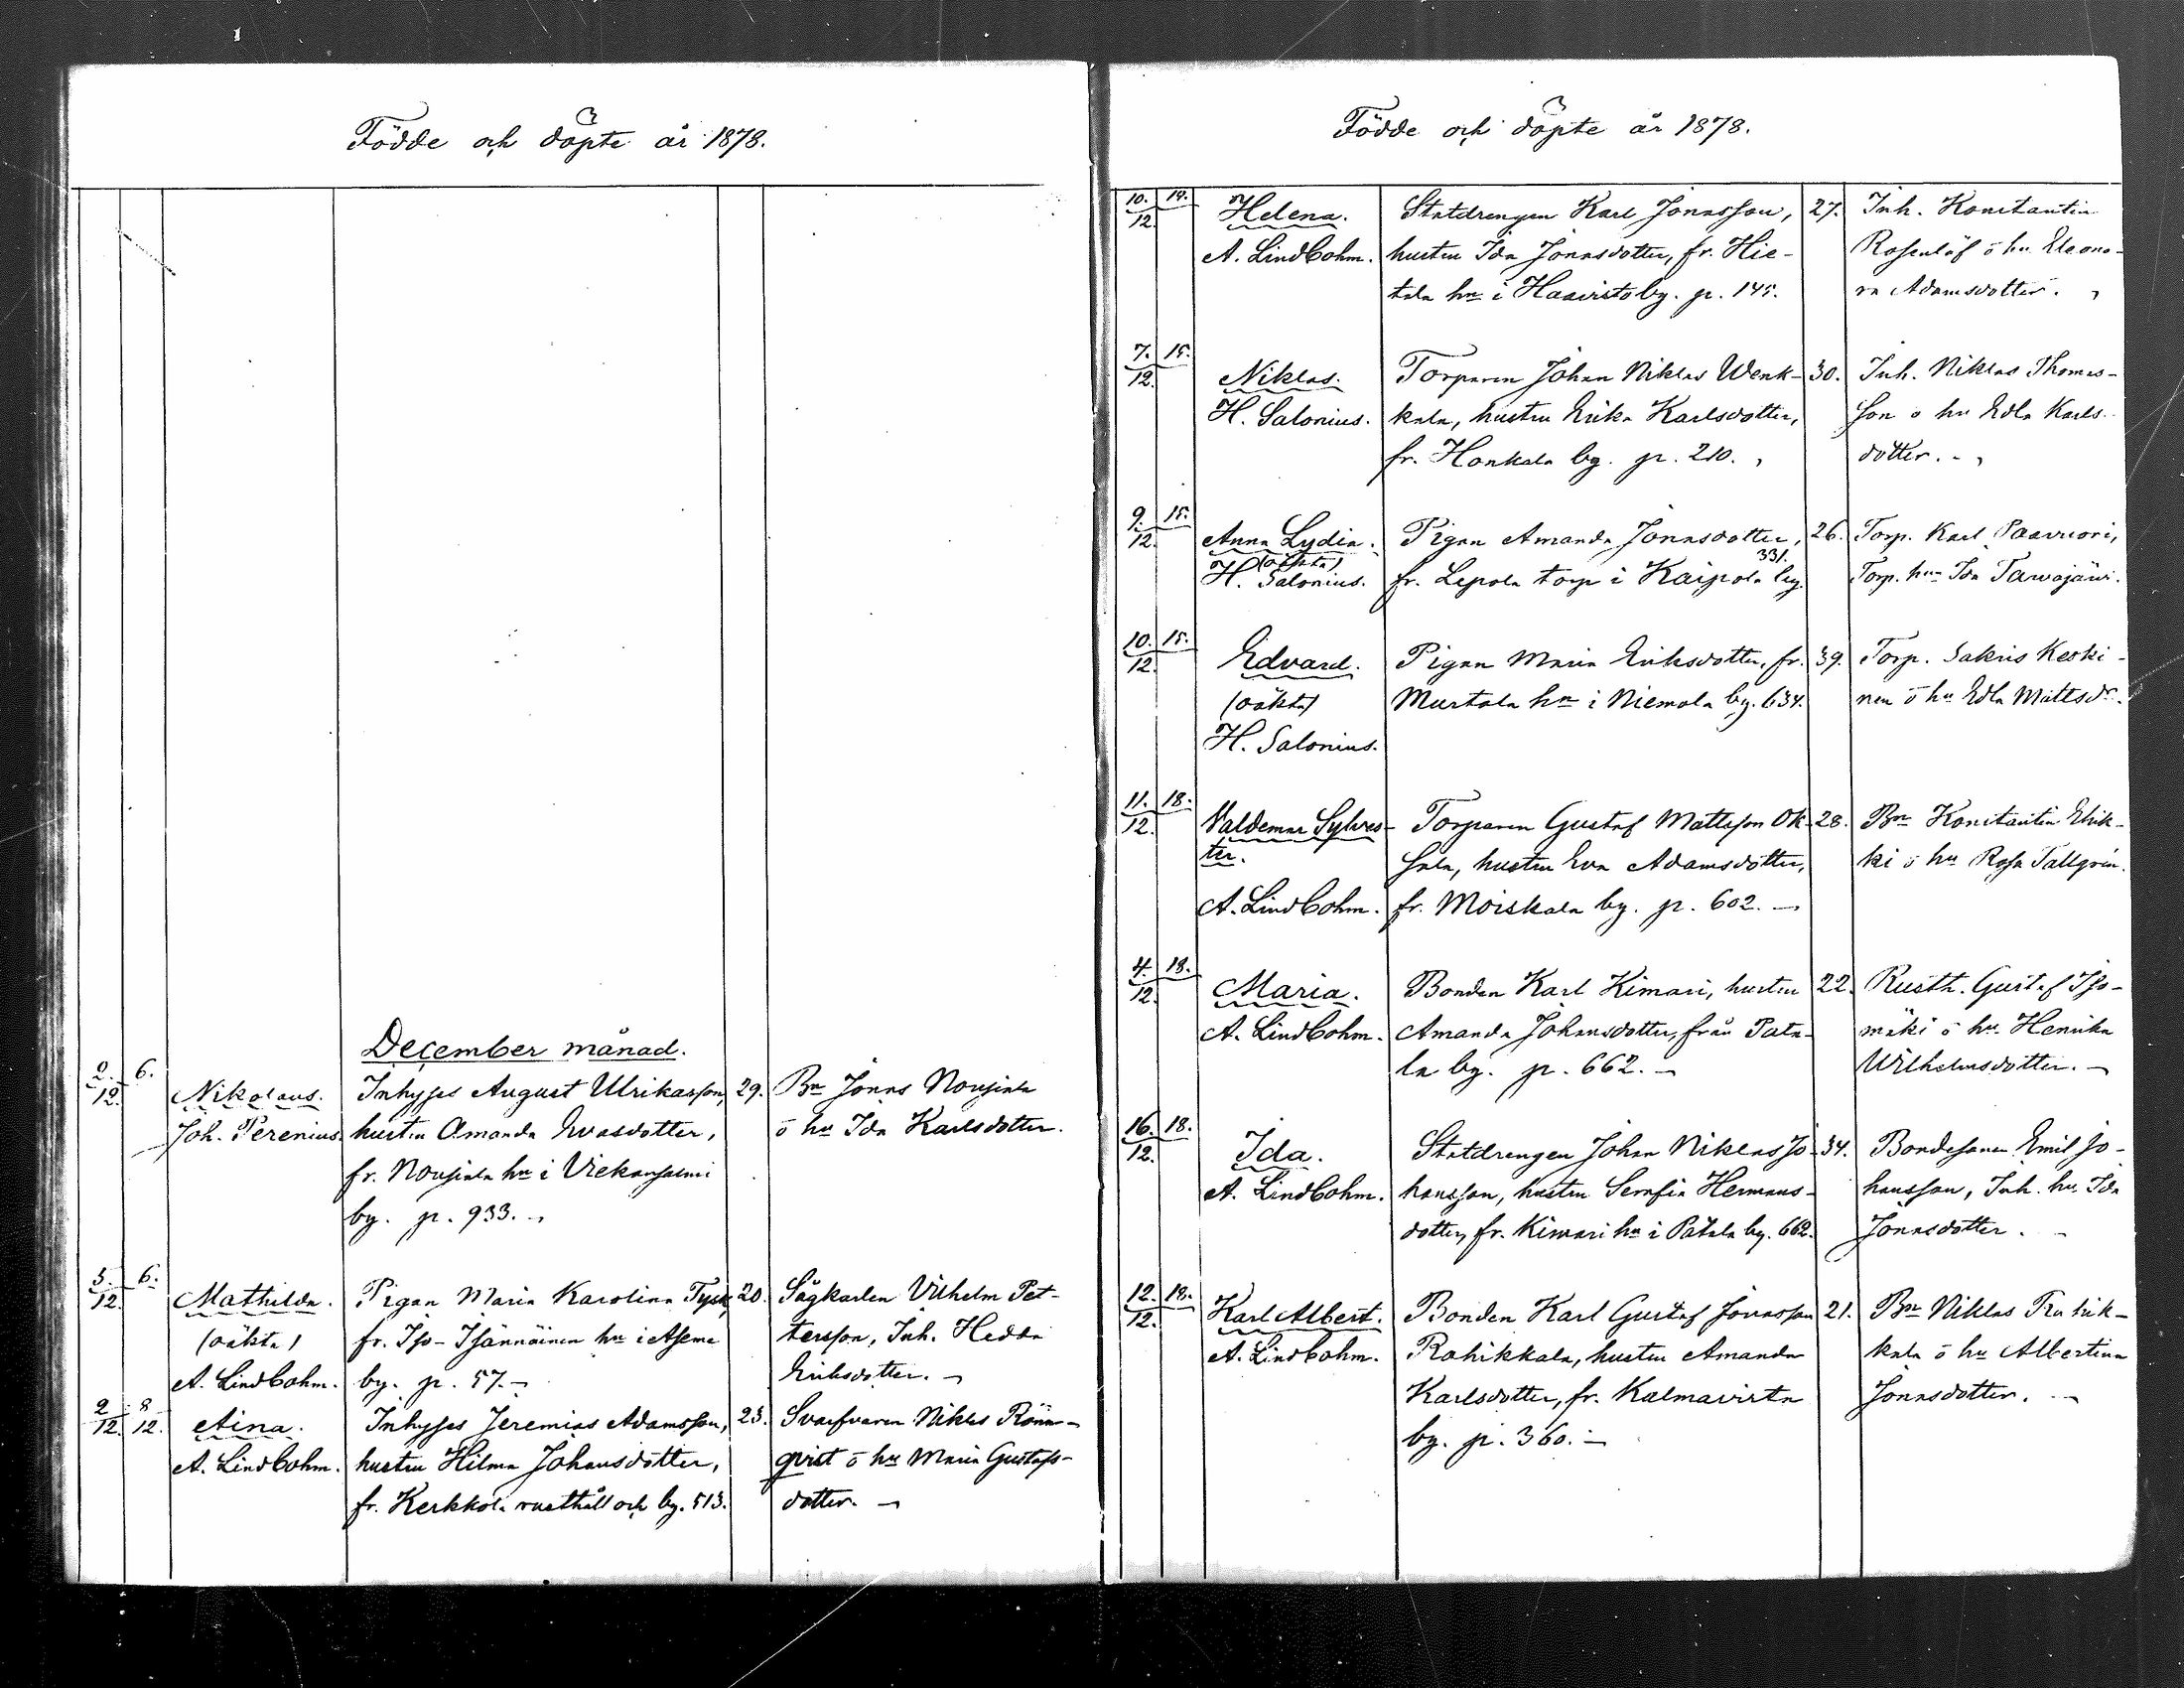 Födde och döpte år 1878.
December månad.
2. 6.
12.
Nikolaus.
Joh. Perenius.
Inhyses August Ulriksson, 29.
hustru Amanda Evasdotter,
fr. Nousiala hn i Viekansalmi
by. p. 933.
Bn Jonas Nousiala
o hu Ida Karlsdotter.
5. 6.
12.
Mathilda.
(oäkta)
A. Lindbohm.
Pigan Maria Karolina Tysk, 20.
fr. Iso-Isännäinen hn i Aseme
by. p. 57.
Sågkarlen Vilhelm Pet-
tersson, Inh. Hedda
Eriksdotter.
2 8
12. 12.
Aina.
A. Lindbohm.
Inhyses Jeremias Adamsson, 23.
hustru Hilma Johansdotter,
fr. Kerkkola rusthåll och by. 513.
Svarfvaren Niklas Rönn-
qvist o hu Maria Gustafs-
dotter.
Födde och döpte år 1878.
10. 14.
12.
Helena.
A. Lindbohm.
Statdrengen Karl Jonasson, 27.
hustru Ida Jonasdotter, fr. Hie-
tala hn i Haavisto by. p. 145.
Inh. Konstantin
Rosenlöf o hu Eleono-
ra Adamsdotter.
7. 15.
12.
Niklas.
H. Salonius.
Torparen Johan Niklas Wenk- 30.
kala, hustru Erika Karlsdotter,
fr. Honkala by. p. 210.
Inh. Niklas Thomas-
son o hu Edla Karls-
dotter.
9. 15.
12.
Anna Lydia.
(oäkta)
H. Salonius.
Pigan Amanda Jonasdotter, 26.
331.
fr. Lepola torp i Kaipola by.
Torp. Karl Paavuori,
Torp. hun Ida Tawajäwi.
10. 15.
12.
Edvard.
(oäkta)
H. Salonius.
Pigan Maria Eriksdotter, fr. 39.
Murtola hn i Niemola by. 634.
Torp. Sakris Keski-
nen o hu Edla Mattsdr.
11. 18.
12.
Valdemar Sylves-
ter.
A. Lindbohm.
Torparen Gustaf Mattsson Ok- 28.
sala, hustru Eva Adamsdotter,
fr. Moiskala by. p. 602.
Bn Konstantin Erik-
ki o hu Rosa Tallgrén.
4. 18.
12.
Maria.
A. Lindbohm.
Bonden Karl Kimari, hustru 22.
Amanda Johansdotter, från Pata-
la by. p. 662.
Rusth. Gustaf Iso-
mäki o hu Henrika
Wilhelmsdotter.
16. 18.
12.
Ida.
A. Lindbohm.
Statdrengen Johan Niklas Jo- 34.
hansson, hustru Serafia Hermans-
dotter, fr. Kimari hn i Patala by. 662.
Bondesonen Emil Jo-
hansson, Inh. hu Ida
Jonasdotter.
12. 18.
12.
Karl Albert.
A. Lindbohm.
Bonden Karl Gustaf Jonasson 21.
Rahikkala, hustru Amanda
Karlsdotter, fr. Kalmavirta
by. p. 360.
Bn Niklas Rahik-
kala o hu Albertina
Jonasdotter.